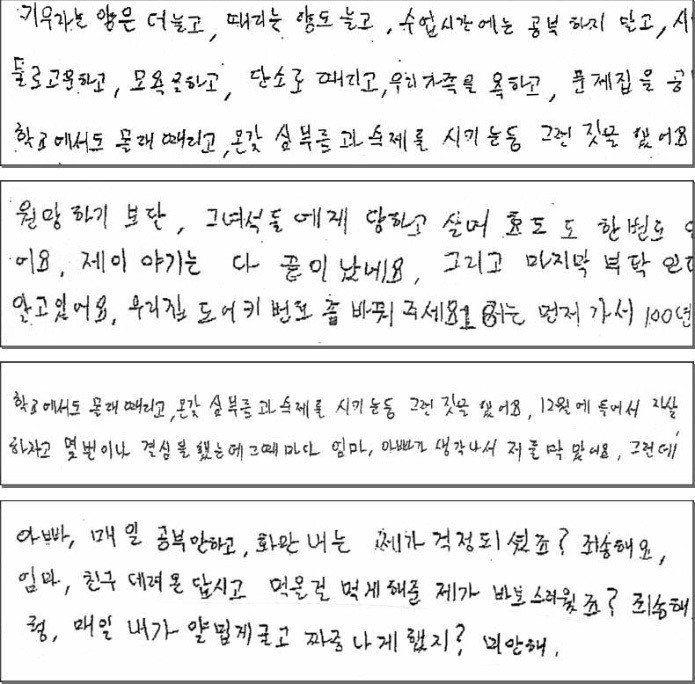 키우라는 양은 더 늘고, 때리는 양도 늘고, 수업시간에는 공부하지 말고, 시
물로고문하고, 모욕을하고, 단소로 때리고, 우리가족을 욕하고, 문제집을 공
학교에서도 몰래 때리고, 온갖 심부름과 숙제를 시키는등 그런 짓을 했어요
원망하기 보단, 그녀석들에게 당하고 살며 효도도 한번도 안
어요, 제 이야기는 다 끝이 났네요, 그리고 마지막 부탁 인데
알고있어요, 우리집 도어키 번호 좀 바꿔 주세요. 저는 먼저 가서 100년
학교에서도 몰래 때리고, 온갖 심부름과 숙제를 시키는등 그런 짓을 했어요, 12월에 들어서 자살
하자고 몇번이나 결심을 했는데 그때마다 엄마, 아빠가 생각나서 저를 막았어요, 그런데
아빠, 매일 공부안하고, 화만 내는 제가 걱정되셨죠? 죄송해요,
엄마, 친구 데려온답시고 먹을걸 먹게해준 제가 바보스러웠죠? 죄송해
형, 매일 내가 얄밉게굴고 짜증나게 했지? 미안해.